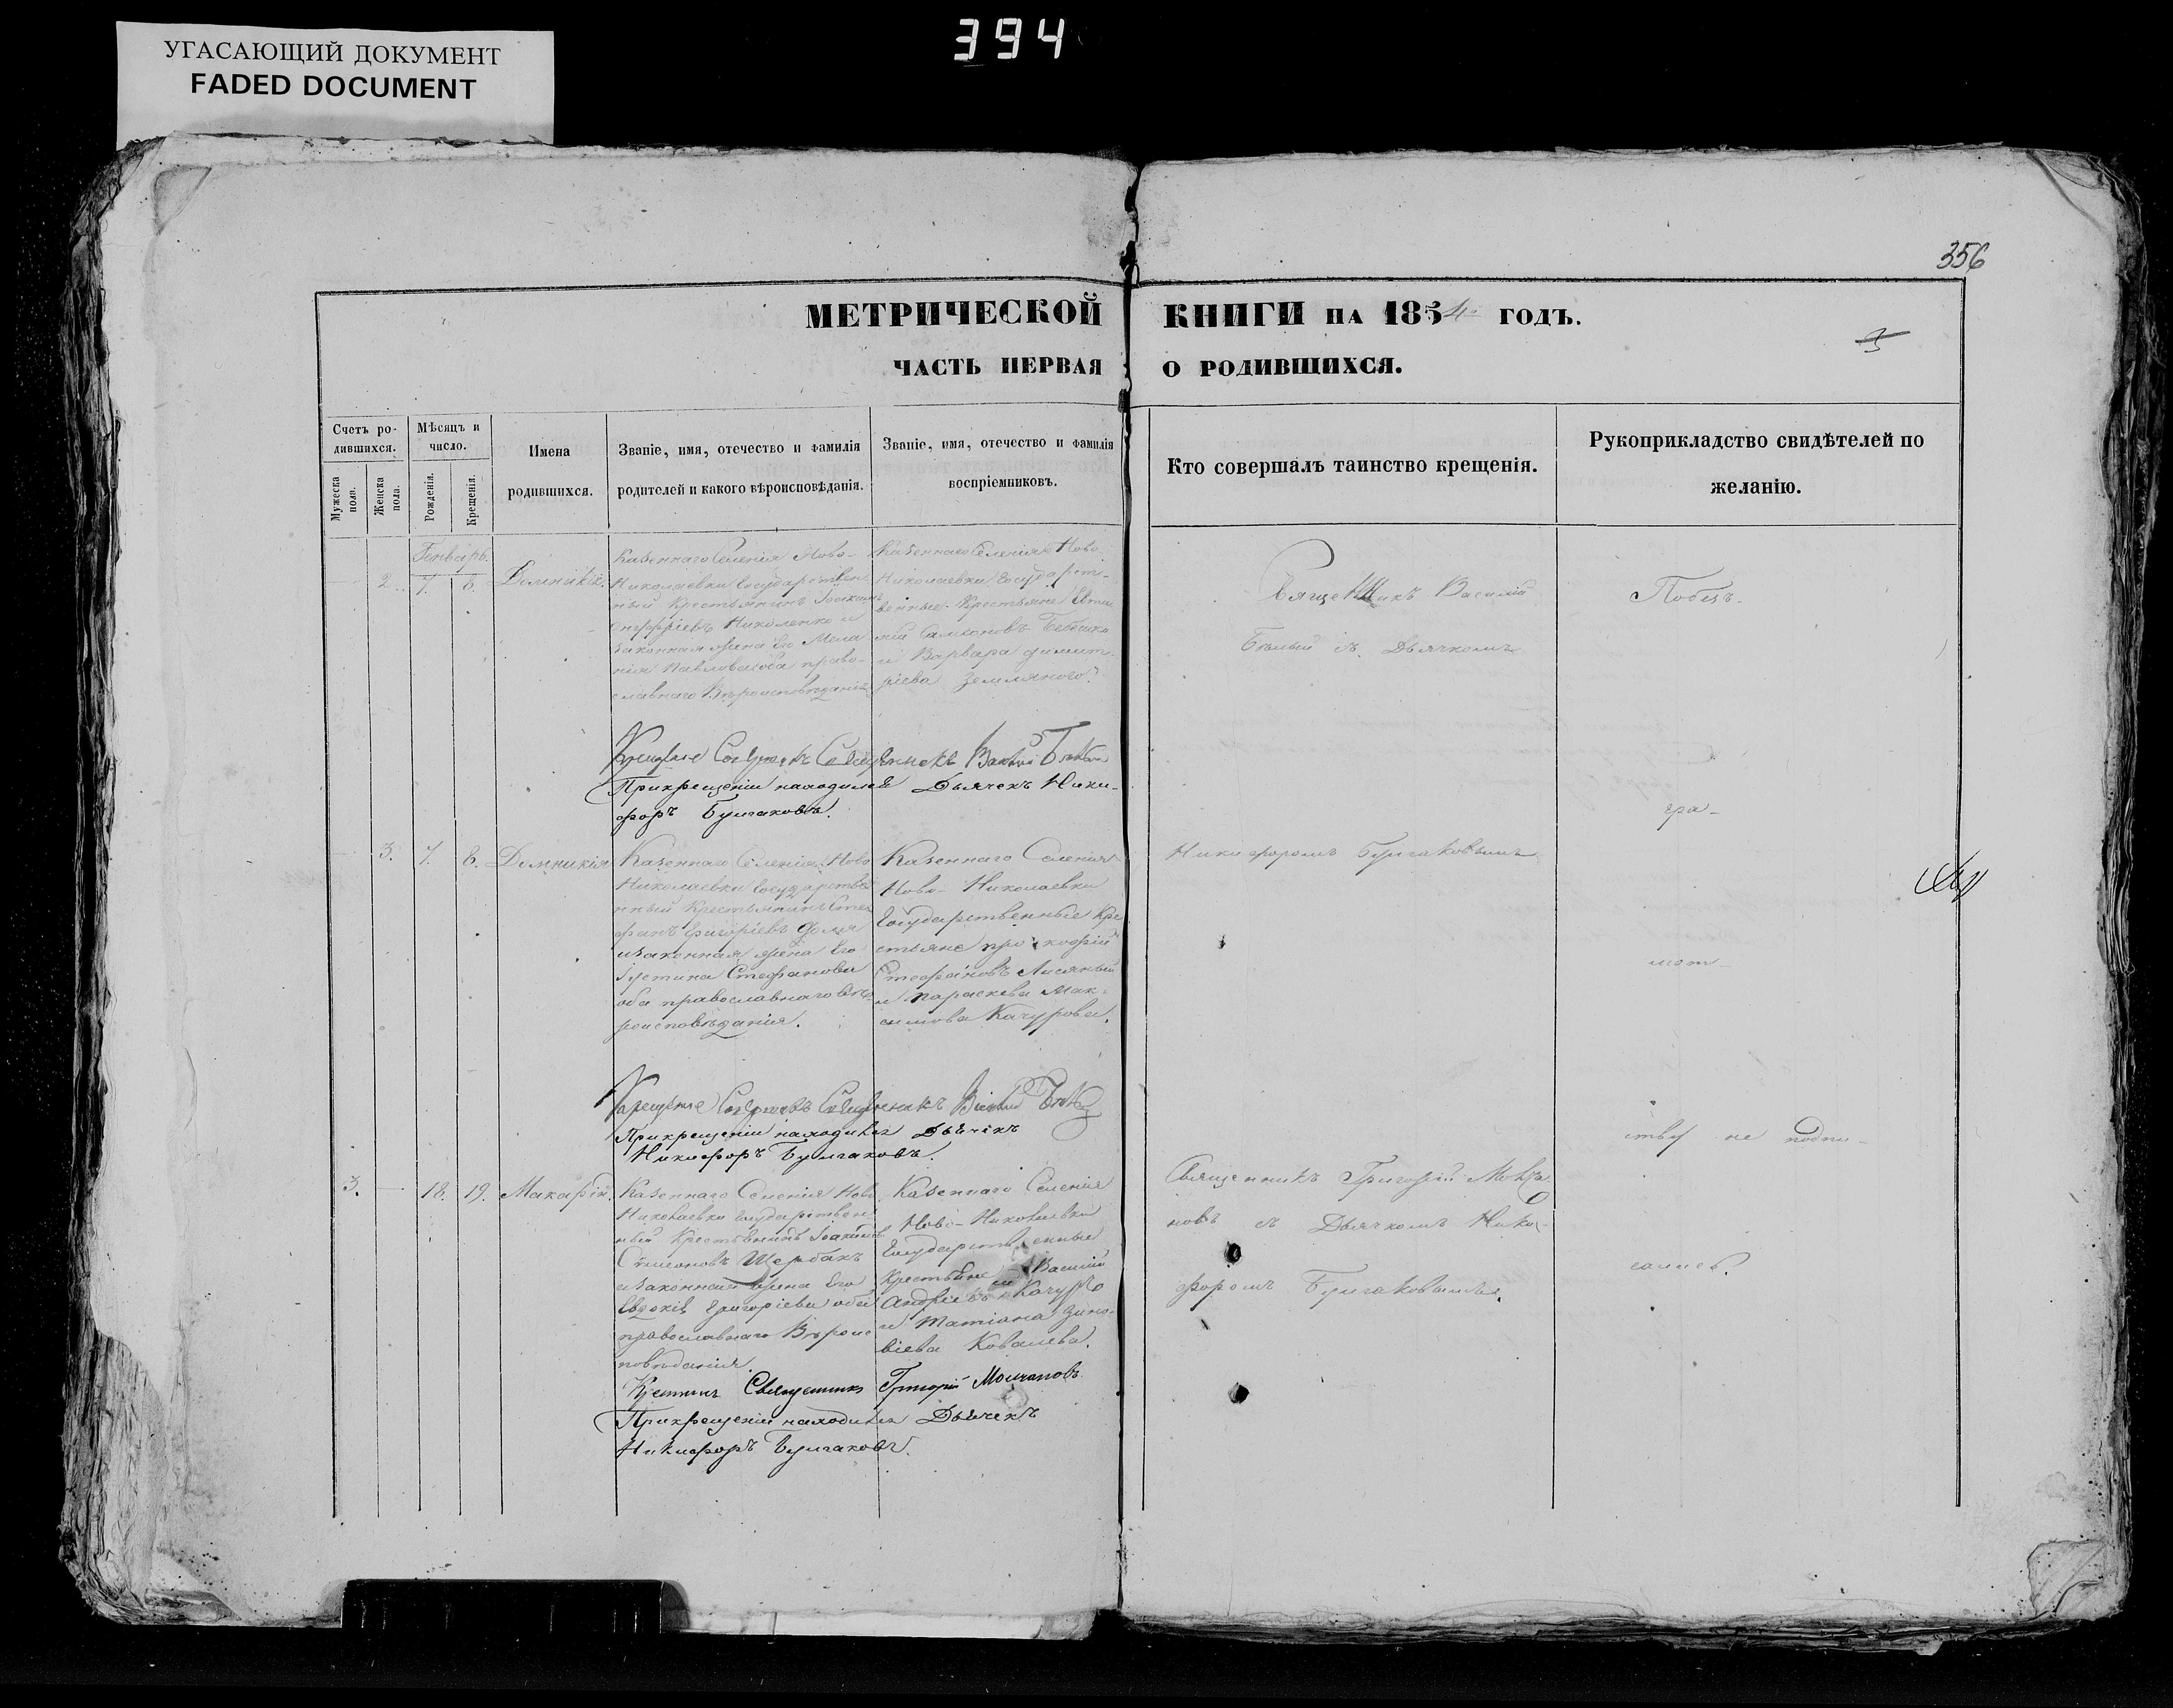 394
УГАСАЮЩИЙ ДОКУМЕНТ
FADED DOCUMENT
356
МЕТРИЧЕСКОЙ КНИГИ НА 1854 ГОДЪ.
3
ЧАСТЬ ПЕРВАЯ О РОДИВШИХСЯ.
Счетъ ро-
дившихся.
Мужеска
пола.
Женска
пола.
Мѣсяцъ и
число.
Рожденія.
Крещенія.
Имена
родившихся.
Званіе, имя, отечество и фамилія
родителей и какого вѣроисповѣданія.
Званіе, имя, отечество и фамилія
воспріемниковъ.
Кто совершалъ таинство крещенія.
Рукоприкладство свидѣтелей по
желанію.
Генварь.
2. 7. 8. Домникія.
Казеннаго Селенія Ново-
Николаевки Государствен
ный Крестьянинъ Іоакимъ
Онуфріевъ Николенко и
законная жена Его Мела
нія Павлова оба право-
славнаго Вѣроисповѣданія
Казеннаго Селенія Ново
Николаевки Государст-
венные Крестьяне
Самсоновъ
и Варвара Димит-
ріева Землянаго.
Священникъ Василій
Бѣлый съ Дьячкомъ
Крещеніе Совершалъ Священникъ Василій Бѣлый
При крещеніи находился Дьячекъ Ники-
форъ Булгаковъ.
3. 7. 8. Домникія
Казеннаго Селенія Ново
Николаевки Государстве
нный Крестьянинъ Сте
фанъ Григоріевъ
и законная жена Его
Іустина Стефанова
оба православнаго Вѣ
роисповѣданія.
Казеннаго Селенія
Ново-Николаевки
Государственные Кре
стьяне Прокофій
Стефановъ
и Параскева Мак-
симова Качурова.
Никифоромъ Булгаковымъ
гра-
мот-
Крещеніе Совершалъ Священникъ Василій Бѣлый
При крещеніи находился Дьячекъ
Никифоръ Булгаковъ.
ству не подпи-
3. 18. 19. Макарій.
Казеннаго Селенія Ново
Николаевки Государствен
ный Крестьянинъ Іоакимъ
Симеоновъ Щербакъ
и законная жена Его
Евдокія Григоріева оба
православнаго Вѣроис
повѣданія.
Казеннаго Селенія
Ново-Николаевки
Государственные
Крестьяне Василій
Андреевъ Качуръ
и Татіана Зино-
віева Ковалева.
Священникъ Григорій Молча
новъ съ Дьячкомъ Ники-
форомъ Булгаковымъ.
сались.
Крестилъ Священникъ Григорій Молчановъ
При крещеніи находился Дьячекъ
Никифоръ Булгаковъ.